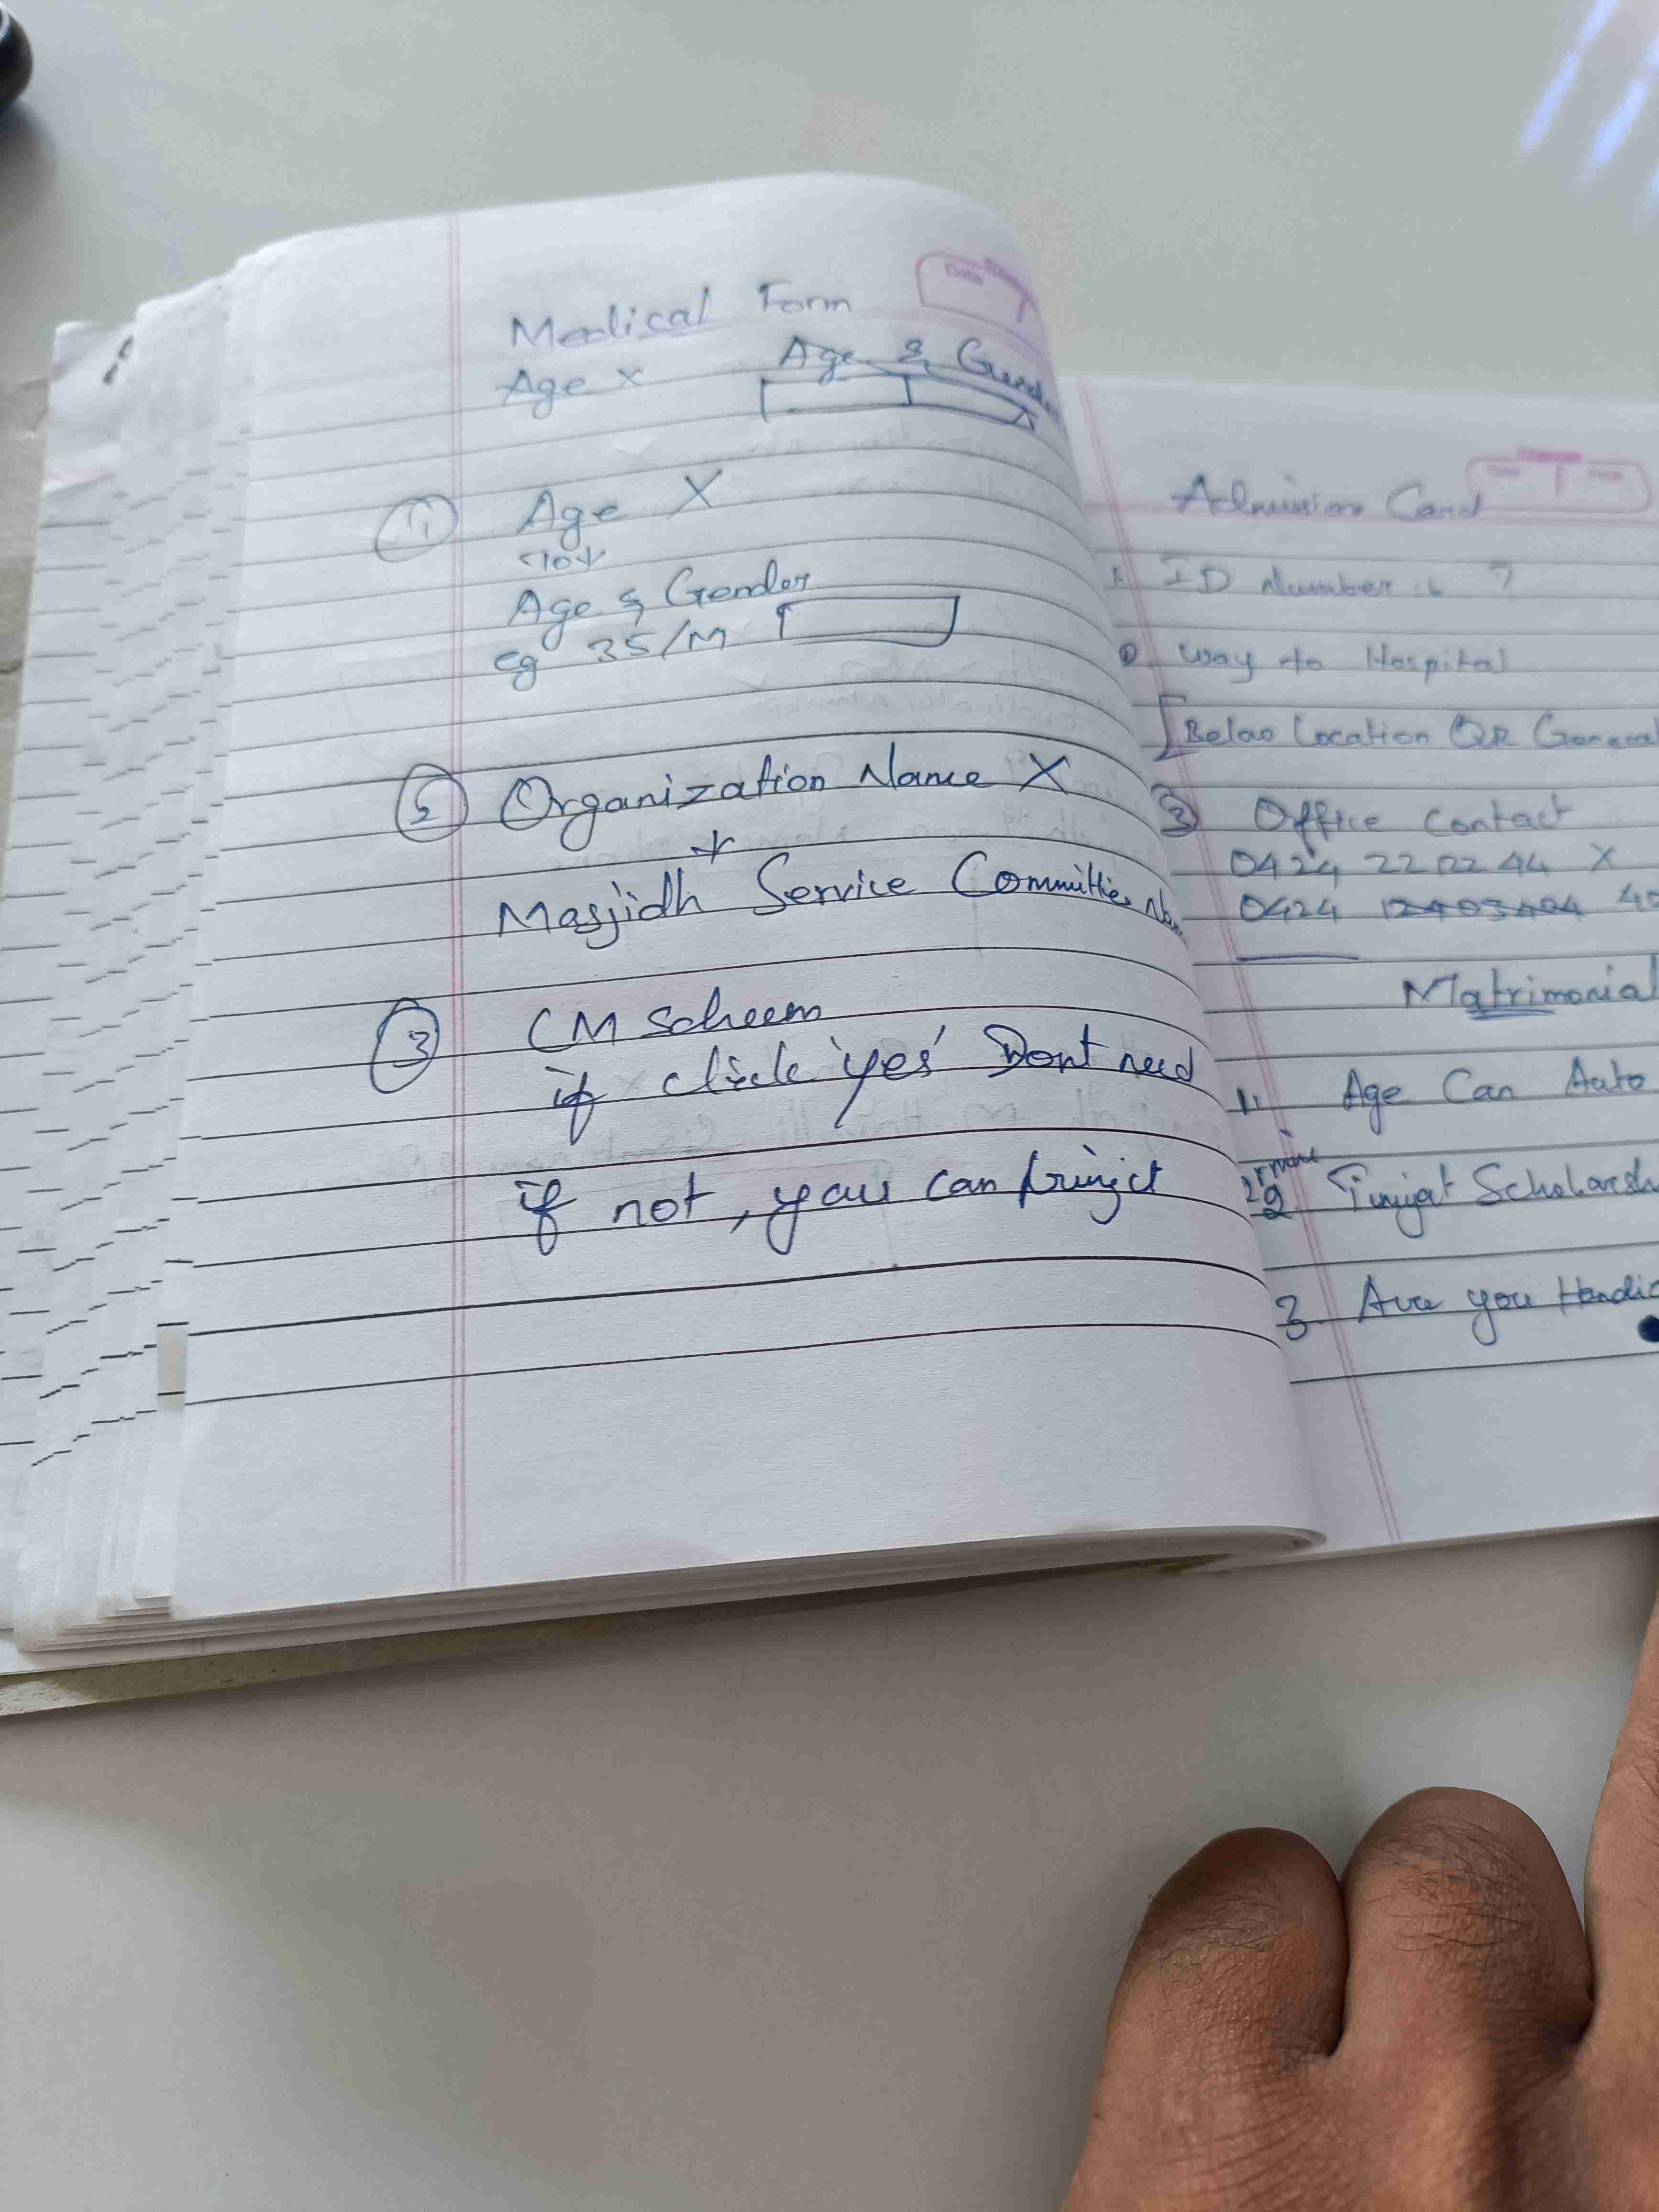 Medical Form
Age x Age & Gender
① Age X
Age & Gender
eg 35/M
② Organization Name X
Masjidh Service Committiee
③ CM Scheem
if click 'yes' Dont need
if not, you can
Admission Card
1. ID Number
② way to Hospital
Location QR General
③ Office Contact
0424 22 22 44 X
0424
Matrimonial
1. Age Can Auto
2. Scholarsh
3. Are you Handic